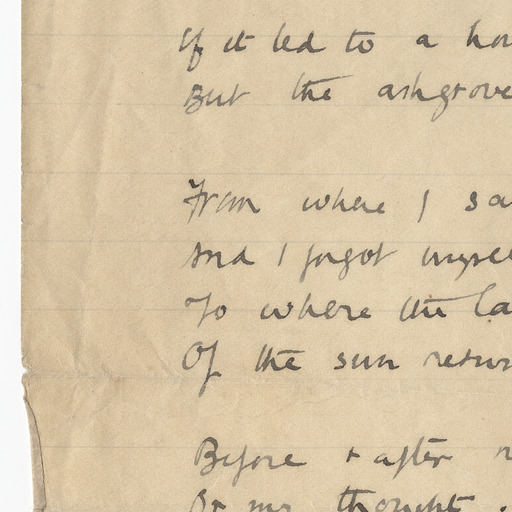 If it led to a
But the ashgrove
From where I
And I forgot
To where the
Of the sun
Before + after
Or my thought